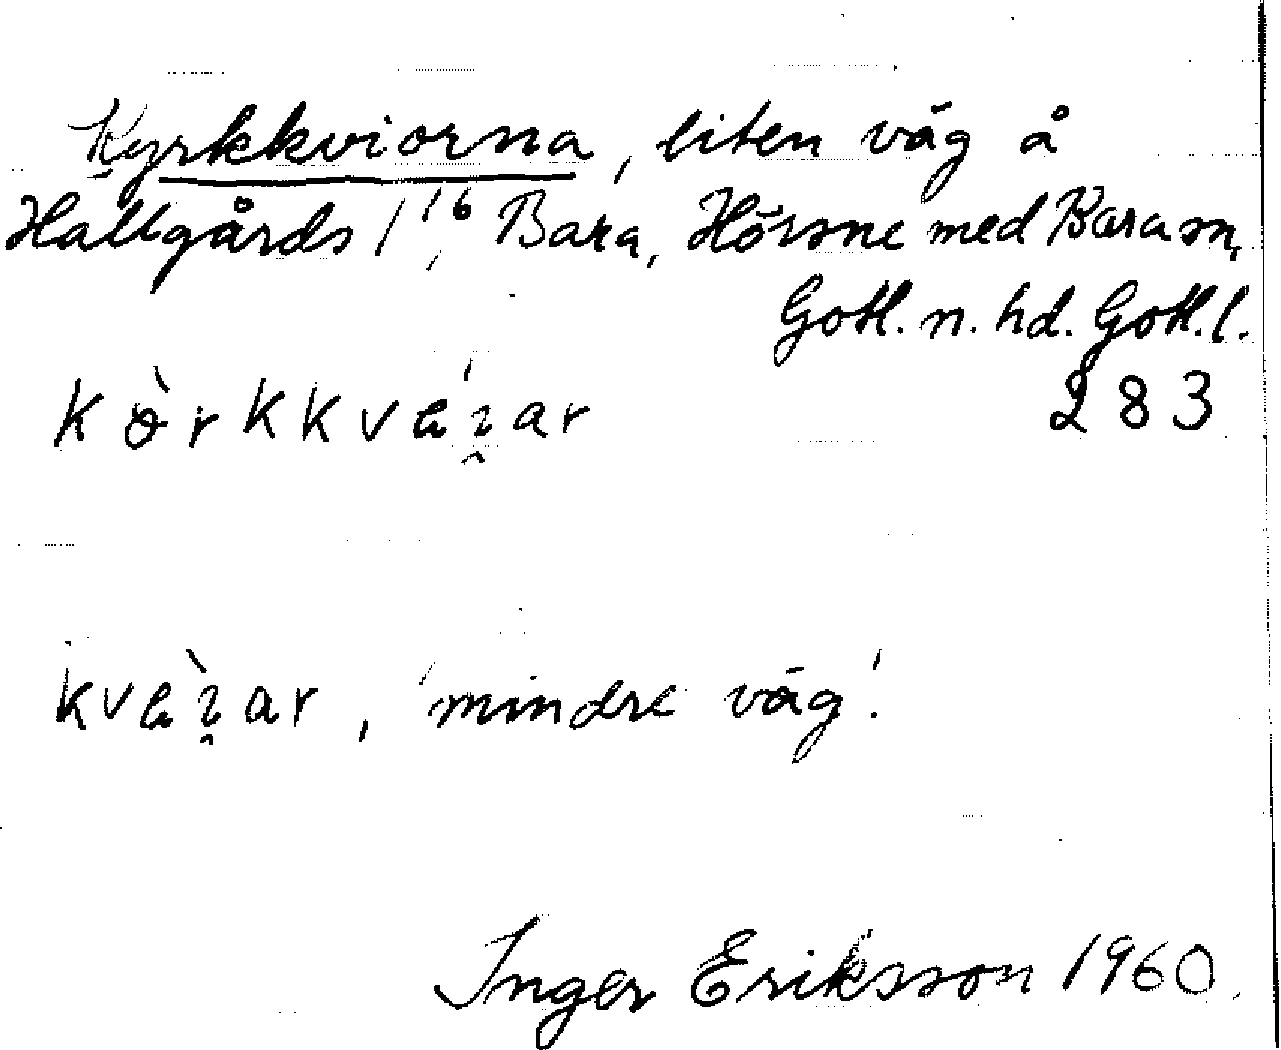 Kyrkkviorna, liten väg å
Hallgårds 1¹⁶, Bara, Hörsne med Bara sn,
Gotl. n. hd. Gotl. l.
283
'mindre väg'.
Inger Eriksson 1960.